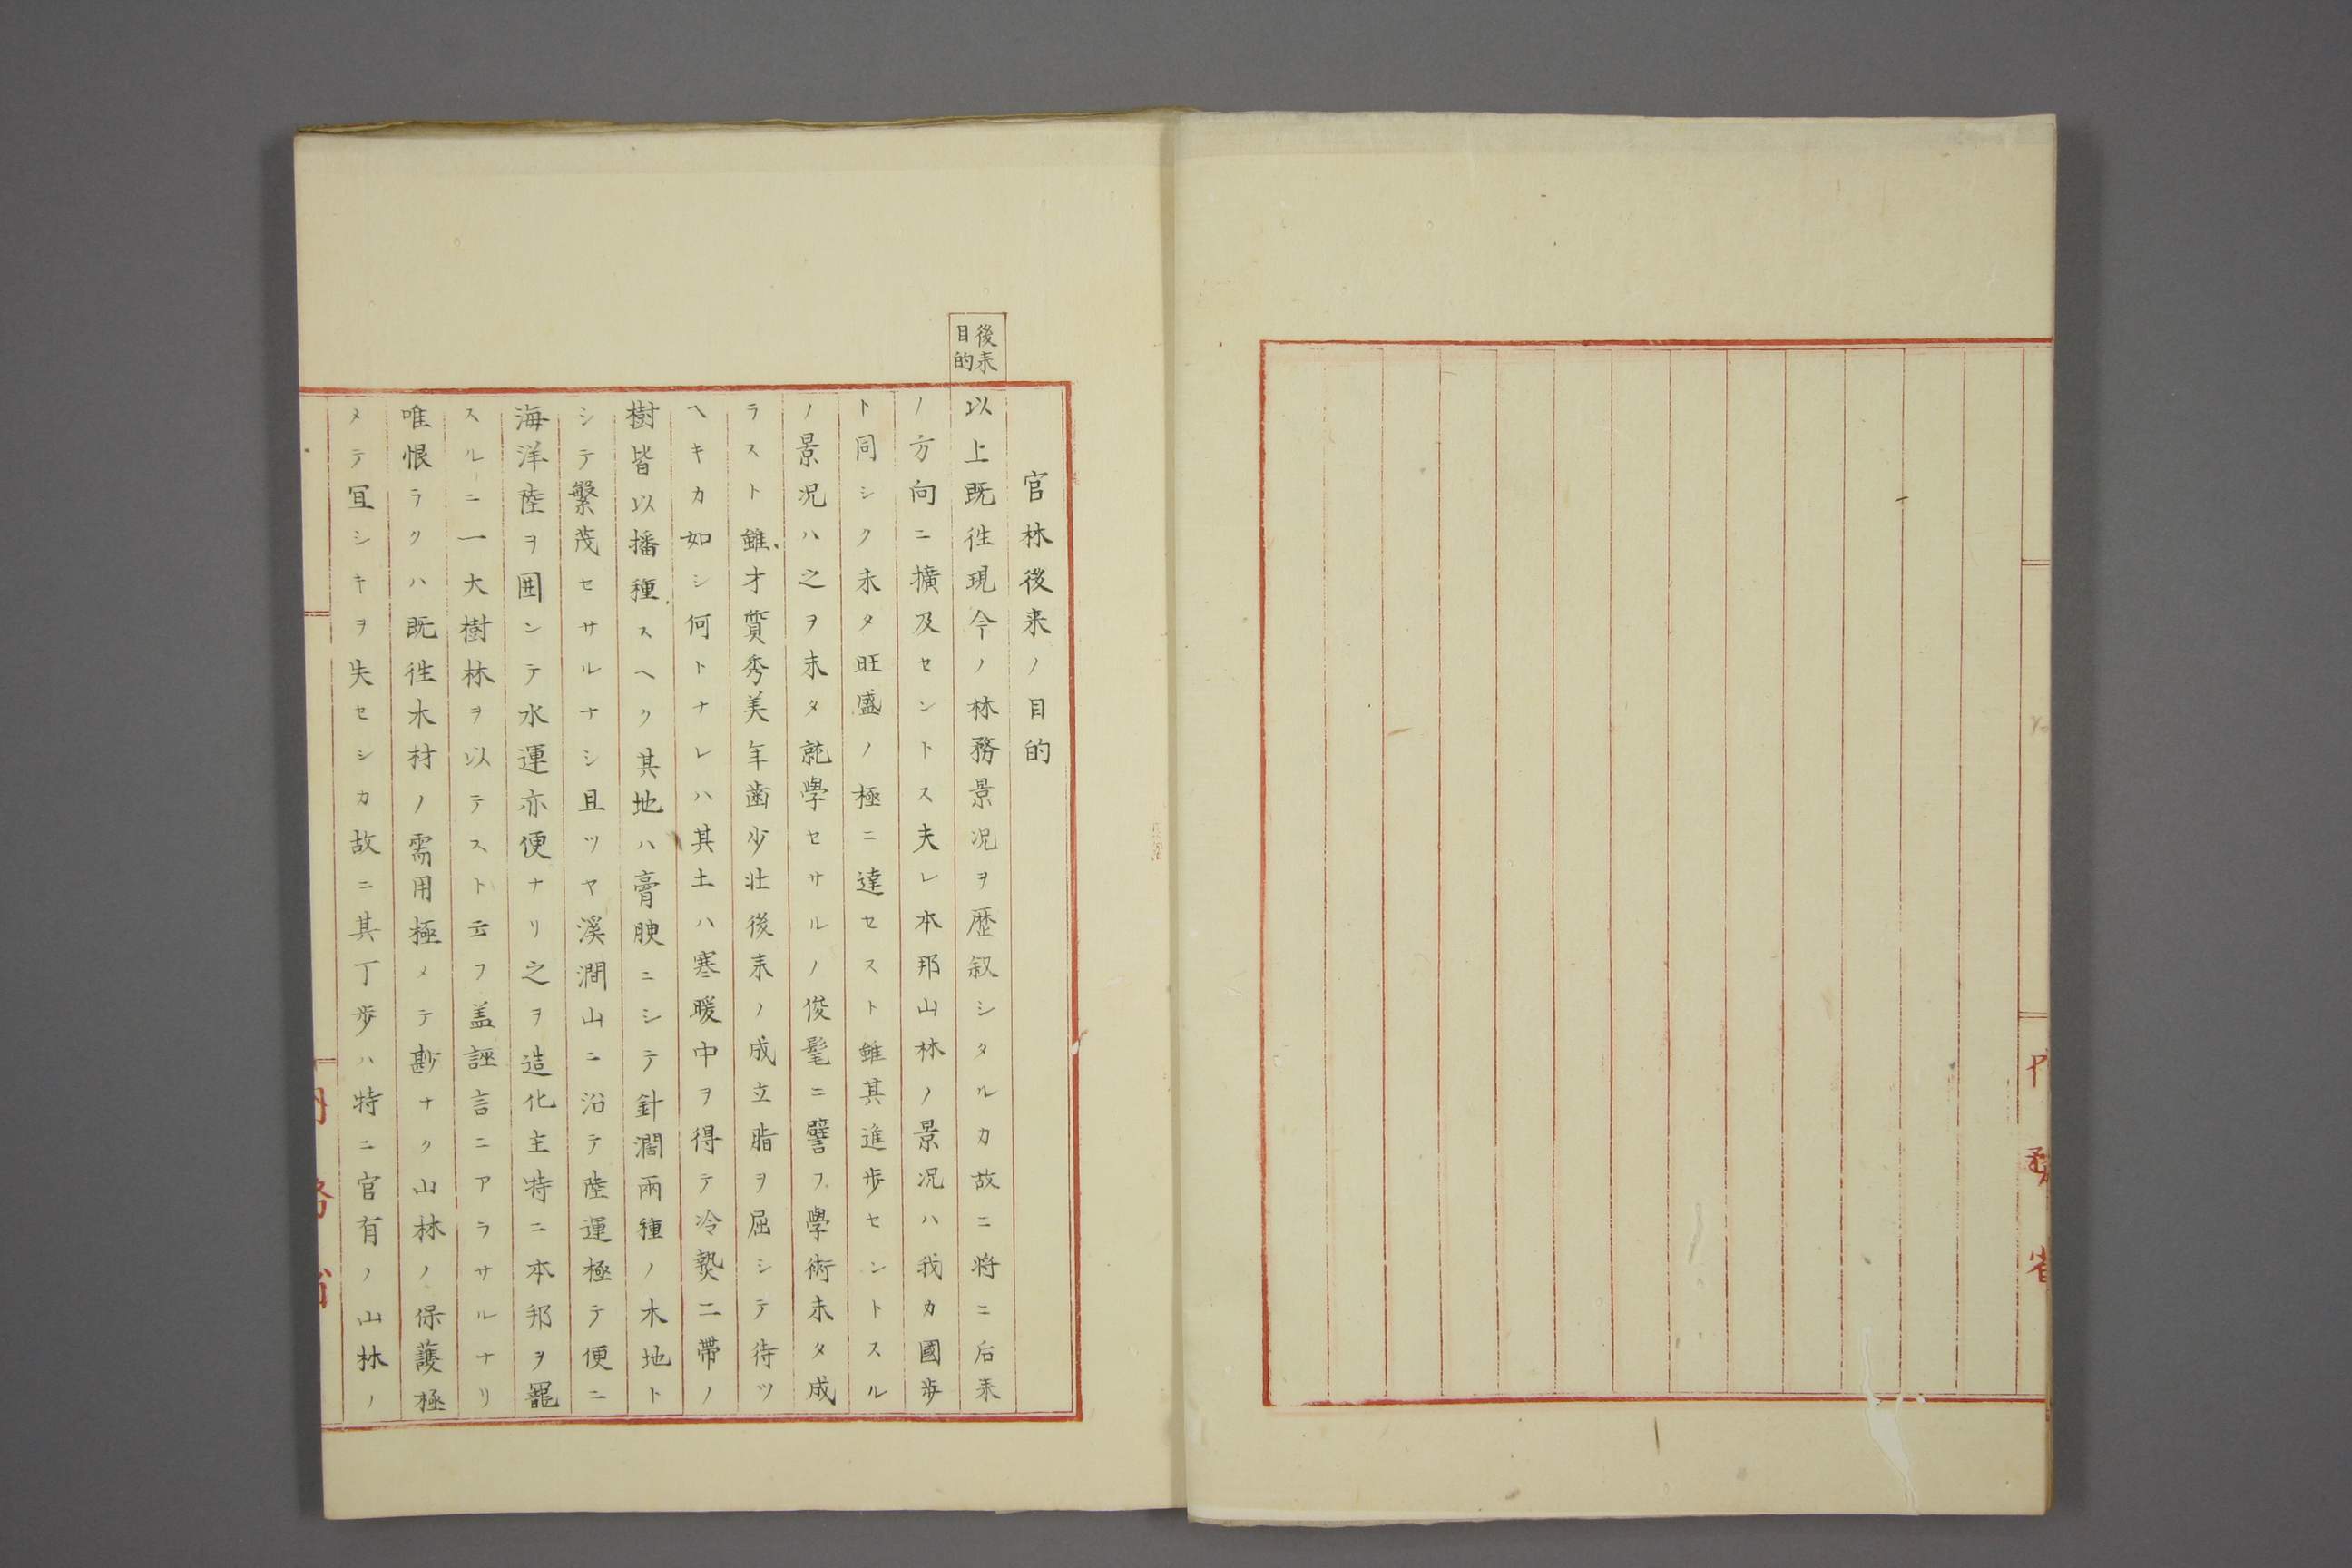 内務省
後来
目的
官林後来ノ目的
以上既徃現今ノ林務景况ヲ歴叙シタルカ故ニ将ニ后来
ノ方向ニ擴及セントス夫レ本邦山林ノ景况ハ我カ國歩
ト同シク未タ旺盛ノ極ニ達セスト雖其進歩セントスル
ノ景况ハ之ヲ未タ就學セサルノ俊髦ニ譬フ學術未タ成
ラスト雖才質秀美年歯少壮後来ノ成立指ヲ屈シテ待ツ
ヘキカ如シ何トナレハ其土ハ寒暖中ヲ得テ冷熱二帯ノ
樹皆以播種スヘク其地ハ膏腴ニシテ針濶兩種ノ木地ト
シテ繁茂セサルナシ且ツヤ溪澗山ニ沿テ陸運極テ便ニ
海洋陸ヲ囲ンテ水運亦便ナリ之ヲ造化主特ニ本邦ヲ罷
スルニ一大樹林ヲ以テスト云フ盖誣言ニアラサルナリ
唯恨ラクハ既徃木材ノ需用極メテ尠ナク山林ノ保護極
メテ冝シキヲ失セシカ故ニ其丁歩ハ特ニ官有ノ山林ノ
内務省